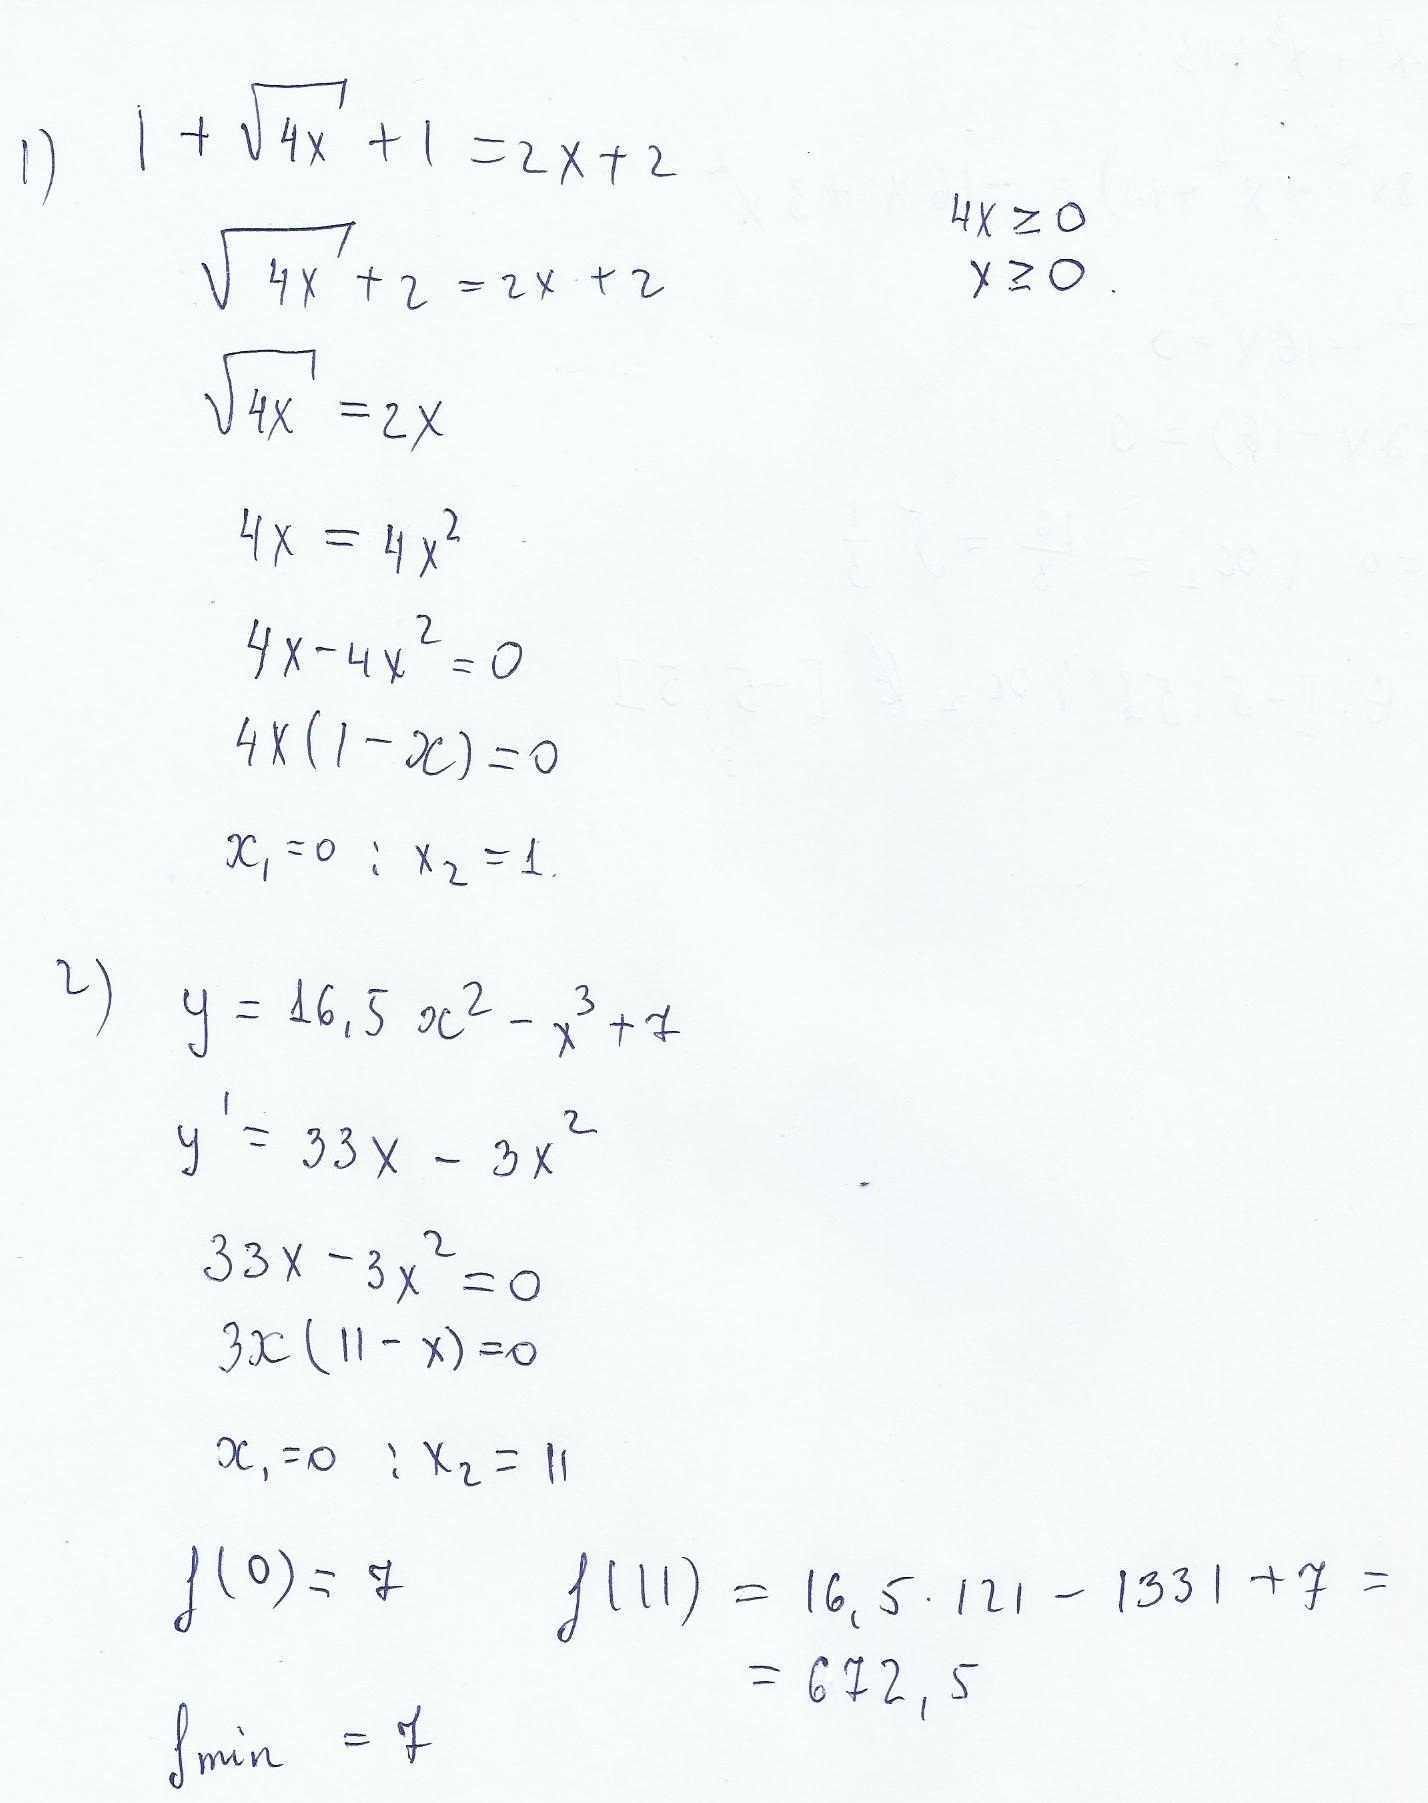 1) 1 + √4x + 1 = 2x + 2
4x ≥ 0
√4x + 2 = 2x + 2
x ≥ 0.
√4x = 2x
4x = 4x²
4x - 4x² = 0
4x(1 - x) = 0
x₁ = 0 ; x₂ = 1.
2) y = 16,5 x² - x³ + 7
y' = 33x - 3x²
33x - 3x² = 0
3x(11 - x) = 0
x₁ = 0 ; x₂ = 11
f(0) = 7 f(11) = 16,5 · 121 - 1331 + 7 =
= 672,5
fmin = 7